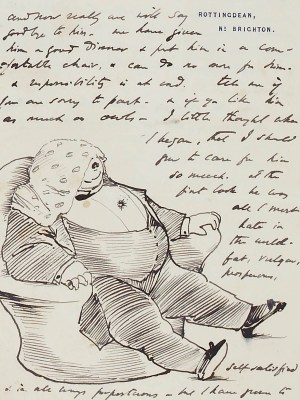 ROTTINGDEAN,
Nr. BRIGHTON.
and now really we will say
goodbye to him. we have given
him a good dinner & put him in a com-
fortable chair, & can do no more for him.
& responsibility is at end. tell me if
you are sorry to part. & if you like him
as much as owls - I little thought when
I began, that I should
grow to care for him
so much. at the
first look he was
all I most
hate in
the world-
fat, vulgar,
prosperous,
self satisfied
& in all ways preposterous - but I have grown to